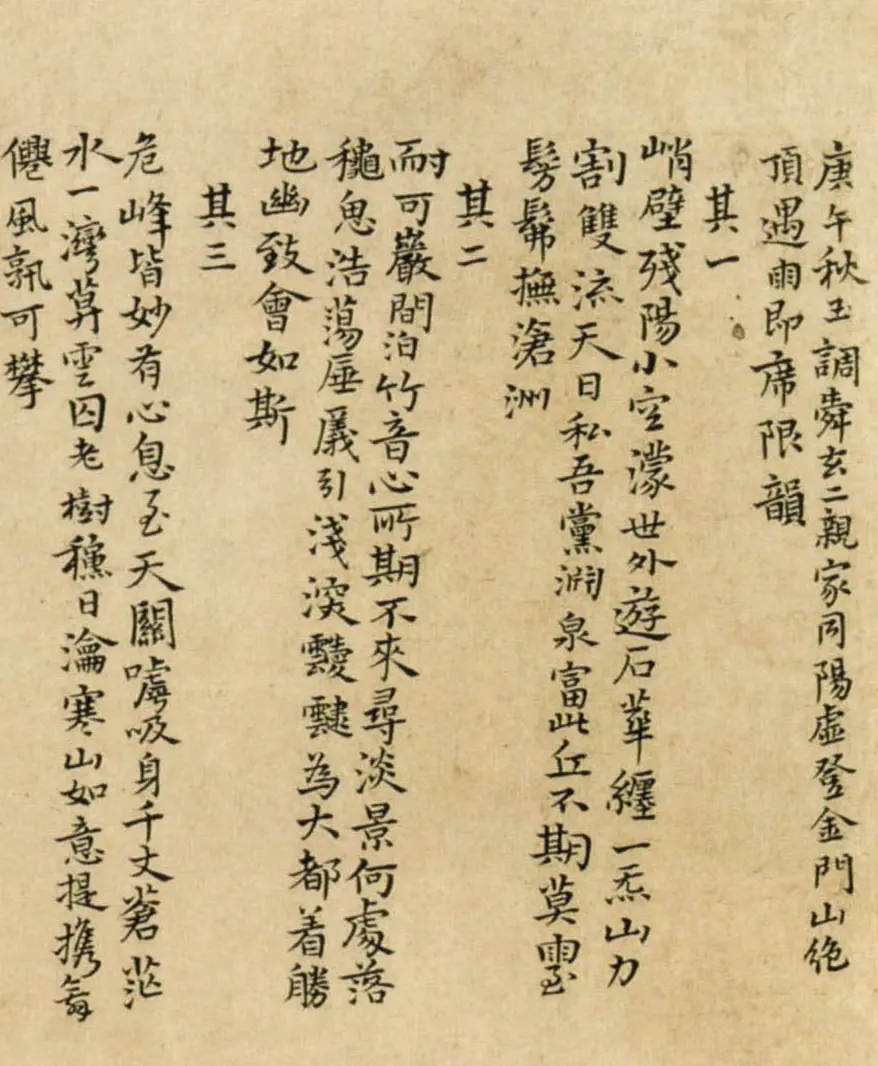 庚午秋玉調舜玄二親家同陽虛登金門山絶
頂遇雨即席限韻
其一
峭壁殘陽小空濛世外遊石華纏一炁山力
割雙流天日私吾黨淵泉富此丘不期莫雲
髣髴撫滄洲
其二
耐可巖間泊竹音心所期不來尋淡景何處落
龝思浩蕩厜㕒引淺深靉靆為大都着勝
地幽致會如斯
其三
危峰皆妙有心息至天關嘑吸身千丈蒼茫
水一灣葬雲囚老樹穤日瀹寒山如意提攜
僊風孰可攀